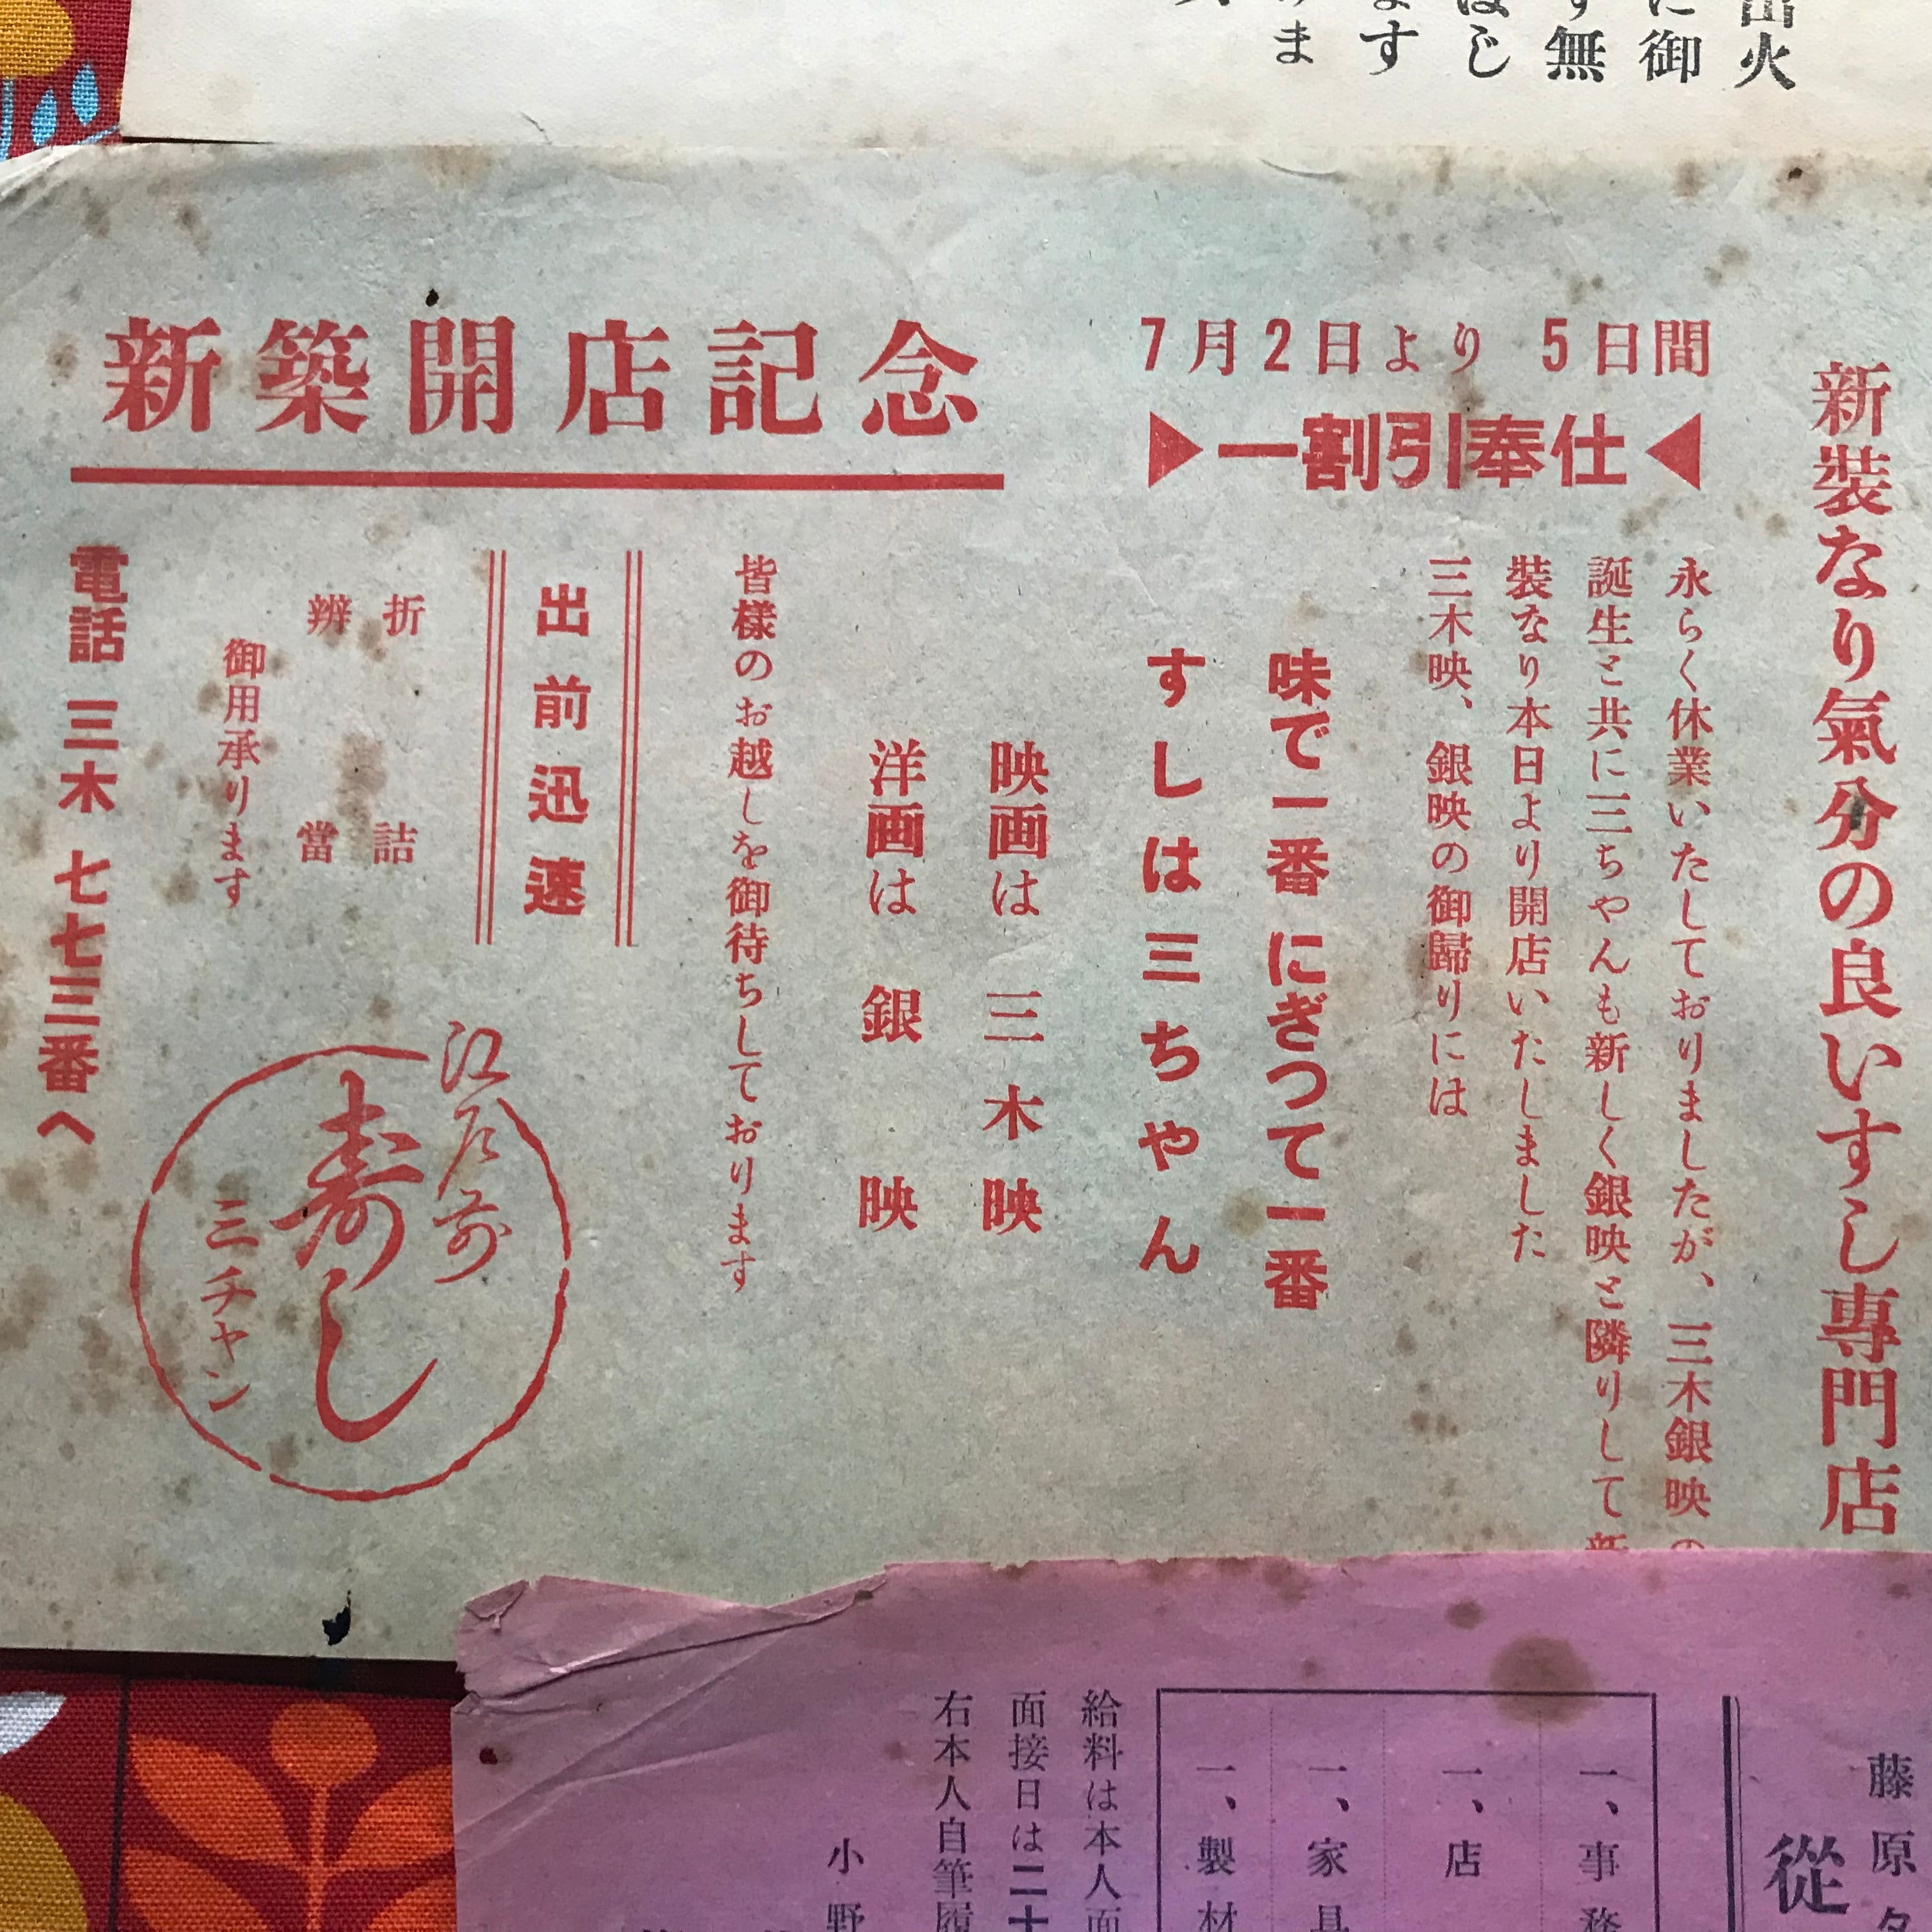 出火
に御
ず無
ほじ
ます
みま
新装なり氣分の良いすし専門店
7月2日より 5日間
▶一割引奉仕◀
永らく休業いたしておりましたが、三木銀映の
誕生と共に三ちやんも新しく銀映と隣りして新
装なり本日より開店いたしました
三木映、銀映の御歸りには
味で一番 にぎつて一番
すしは三ちやん
映画は 三木映
洋画は 銀映
皆様のお越しを御待ちしております
新築開店記念
出前迅速
折詰
辨當
御用承ります
江戸前
寿し
三チャン
電話 三木 七七三番へ
藤原
從
一、事務
一、店
一、家具
一、製材
給料は本人面
面接日は二十
右本人自筆履
小野